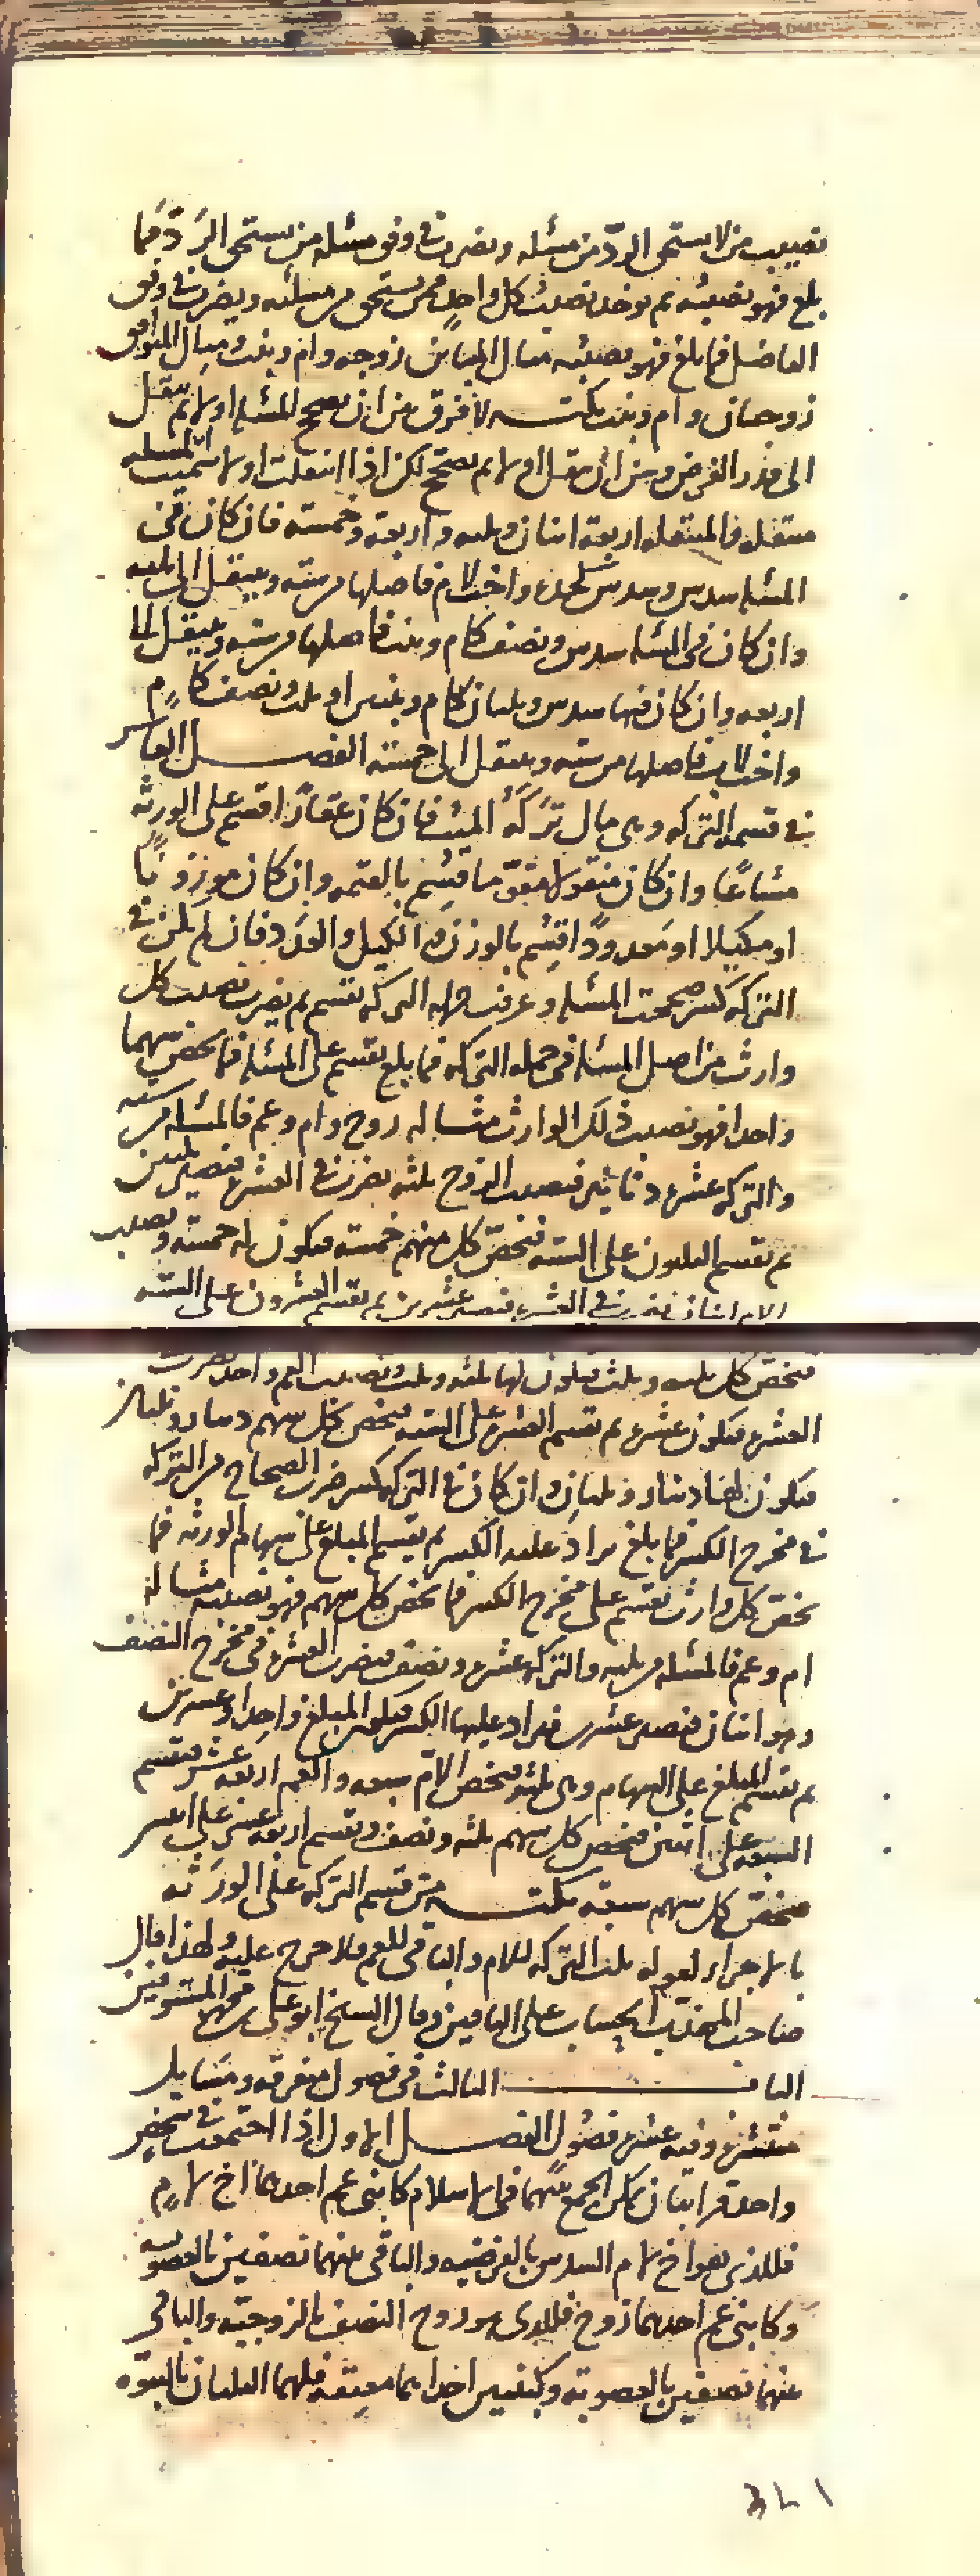 نصيب من لا يستحق الرد من مسئله ويضرب في وفق مسئله من يستحق الرد فما
بلغ فهو نصيبه ثم يوخذ نصيب كل واحد ممن يستحق من مسلته ويضرب في وفق
الفاضل فما بلغ فهو نصيبه مثال المباين زوجه وام وبنت ومثال الموافق
زوجتان وام وبنت نكتـــه لا فرق بين ان تصح المسله اولا ثم تنقل
الى قدر الفرض وبين ان تنقل اولا ثم تصحح لكن اذا انتقلت اولا سميت المسله
منتقله فالمنتقله اربعة اثنان وثلثه واربعه وخمسه فان كان في
المسله سدس وسدس كجده واخ لام فاصلها من سته وينتقل الى
وان كان في المسله سدس ونصف كام وبنت فاصلها من سته وينتقل الى
اربعه وان كان فيها سدس وثلثان كام وبنتين او ثلث ونصف كام
واخت لاب فاصلها من سته وينتقل الى خمسه الفصـــل العاشر
في قسمه التركه وهي مال تركه الميت فان كان عقارا قسم على الورثه
مشاعا وان كان منقولا متقوما قسم بالقيمه وان كان موزونا
او مكيلا او معدودا قسم بالوزن والكيل والعدد فان لم يكن في
التركه كسر صححت المسله وعرفت جمله التركه ثم يضرب نصيب كل
وارث من اصل المسله في جمله التركه فما بلغ يقسم على المسله فما يخص سهما
واحدا فهو نصيب ذلك الوارث مثاله زوج وام وعم فالمسله من سته
والتركه عشره دنانير فنصيب الزوج ثلثه يضرب في العشره فيصير ثلثين
ثم تقسم الثلثون على السته فيخص كل منهم خمسه فيكون له خمسه ونصيب
الام اثنان يضرب في العشره فيصير عشرين ثم يقسم العشرون على السته
فيخص كل ثلثه وثلث فيكون لها ثلثه وثلث ونصيب العم واحد يضرب
العشره فيكون عشره ثم تقسم العشره على السته فيخص كل سهم دينار وثلثان
فيكون له دينار وثلثان وان كان في التركه كسر ضرب الصحاح من التركه
في مخرج الكسر فما بلغ يزاد عليه الكسر ثم يقسم المبلغ على سهام الورثه فما
يخص كل وارث يقسم على مخرج الكسر فما يخص كل سهم فهو نصيبه مثاله
ام وعم فالمسله من ثلثه والتركه عشره ونصف فيضرب العشره في مخرج النصف
وهو اثنان فيصير عشرين فيزاد عليها الكسر فيكون المبلغ واحدا وعشرين
ثم يقسم المبلغ على السهام وهي ثلثه فيخص الام سبعه والعم اربعه عشر فيقسم
السبعه على اثنين فيخص كل سهم ثلثه ونصف ويقسم اربعه عشر على اثنين
فيخص كل سهم سبعه نكتـــه متى قسم التركه على الورثه
بالاجزاء لقوله ثلث التركه للام والباقي للعم فلا حرج عليه ولهذا قال
صاحب المهذب الحساب على وقال الشيخ ابو على
البـــاب الثالث في فصول متفرقه ومسايل
منتشره وفيه عشره فصول الفصـــل الاول اذا اجتمعت في شخص
واحد قرابتان يمكن الجمع بينهما في الاسلام كابني عم احدهما اخ لام
فللذي هو اخ لام السدس بالفرضيه والباقي بينهما نصفين بالعصوبه
وكابني عم احدهما زوج فللذي هو زوج النصف بالزوجيه والباقي
بينهما نصفين بالعصوبه وكبنتين احداهما معتقه فلهما الثلثان بالبنوه